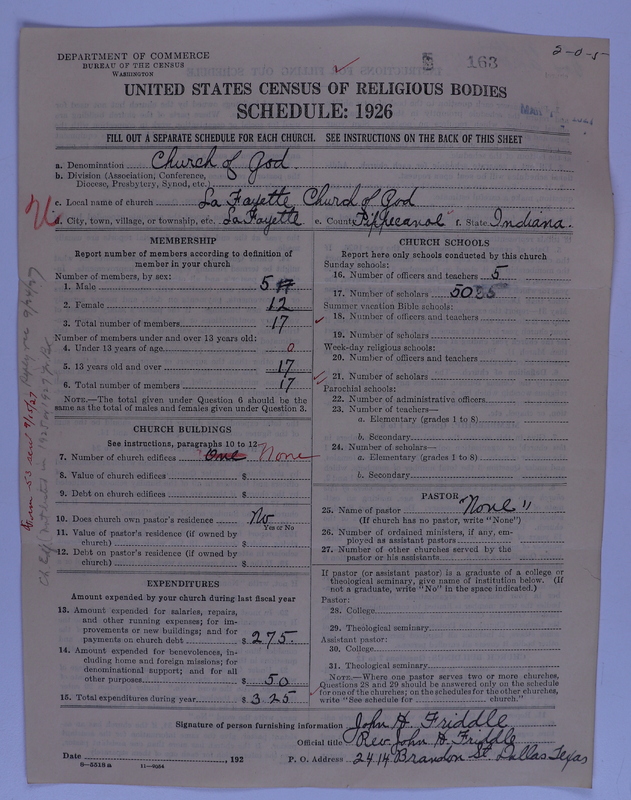 DEPARTMENT OF COMMERCE
BUREAU OF THE CENSUS
WASHINGTON
163
2-0-5-
UNITED STATES CENSUS OF RELIGIOUS BODIES
SCHEDULE: 1926
FILL OUT A SEPARATE SCHEDULE FOR EACH CHURCH. SEE INSTRUCTIONS ON THE BACK OF THIS SHEET
a. Denomination Church of God
b. Division (Association, Conference,
Diocese, Presbytery, Synod, etc.)
c. Local name of church La Fayette Church of God
d. City, town, village, or township, etc. La Fayette e. County Tippecanoe f. State Indiana.
MEMBERSHIP
Report number of members according to definition of
member in your church
Number of members, by sex:
1. Male 5
2. Female 12
3. Total number of members 17
Number of members under and over 13 years old:
4. Under 13 years of age 0
5. 13 years old and over 17
6. Total number of members 17
NOTE.—The total given under Question 6 should be the
same as the total of males and females given under Question 3.
CHURCH BUILDINGS
See instructions, paragraphs 10 to 12
7. Number of church edifices One None
8. Value of church edifices $
9. Debt on church edifices $
10. Does church own pastor's residence No
Yes or No
11. Value of pastor's residence (if owned by
church) $
12. Debt on pastor's residence (if owned by
church) $
EXPENDITURES
Amount expended by your church during last fiscal year
13. Amount expended for salaries, repairs,
and other running expenses; for im-
provements or new buildings; and for
payments on church debt $ 275
14. Amount expended for benevolences, in-
cluding home and foreign missions; for
denominational support; and for all
other purposes $ 50
15. Total expenditures during year $ 325
CHURCH SCHOOLS
Report here only schools conducted by this church
Sunday schools:
16. Number of officers and teachers 5
17. Number of scholars 50
Summer vacation Bible schools:
18. Number of officers and teachers
19. Number of scholars
Week-day religious schools:
20. Number of officers and teachers
21. Number of scholars
Parochial schools:
22. Number of administrative officers
23. Number of teachers—
a. Elementary (grades 1 to 8)
b. Secondary
24. Number of scholars—
a. Elementary (grades 1 to 8)
b. Secondary
PASTOR
25. Name of pastor "None"
(If church has no pastor, write "None")
26. Number of ordained ministers, if any, em-
ployed as assistant pastors
27. Number of other churches served by the
pastor or his assistants
If pastor (or assistant pastor) is a graduate of a college or
theological seminary, give name of institution below. (If
not a graduate, write "No" in the space indicated.)
Pastor:
28. College
29. Theological seminary
Assistant pastor:
30. College
31. Theological seminary
NOTE.—Where one pastor serves two or more churches,
Questions 28 and 29 should be answered only on the schedule
for one of the churches; on the schedules for the other churches,
write "See schedule for church."
Signature of person furnishing information John H. Friddle
Official title Rev. John H. Friddle
Date , 192 P. O. Address 2414 Brandon St. Dallas Texas
8-5518a 11-9054